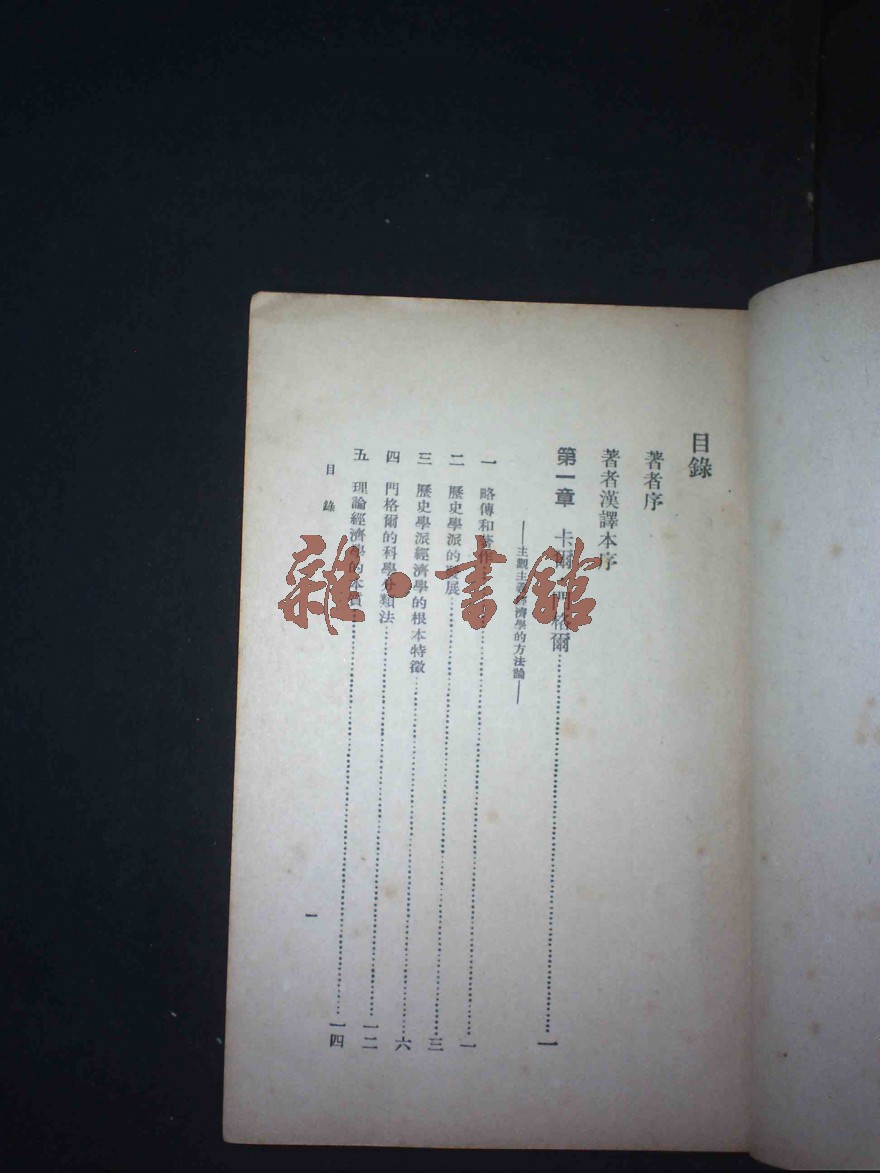 目錄
著者序
著者漢譯本序
第一章 卡爾·門格爾……一
——主觀主義經濟學的方法論——
一 略傳和著作……一
二 歷史學派的發展……三
三 歷史學派經濟學的根本特徵……六
四 門格爾的科學分類法……一二
五 理論經濟學的本質……一四
目錄
一
雜·書館